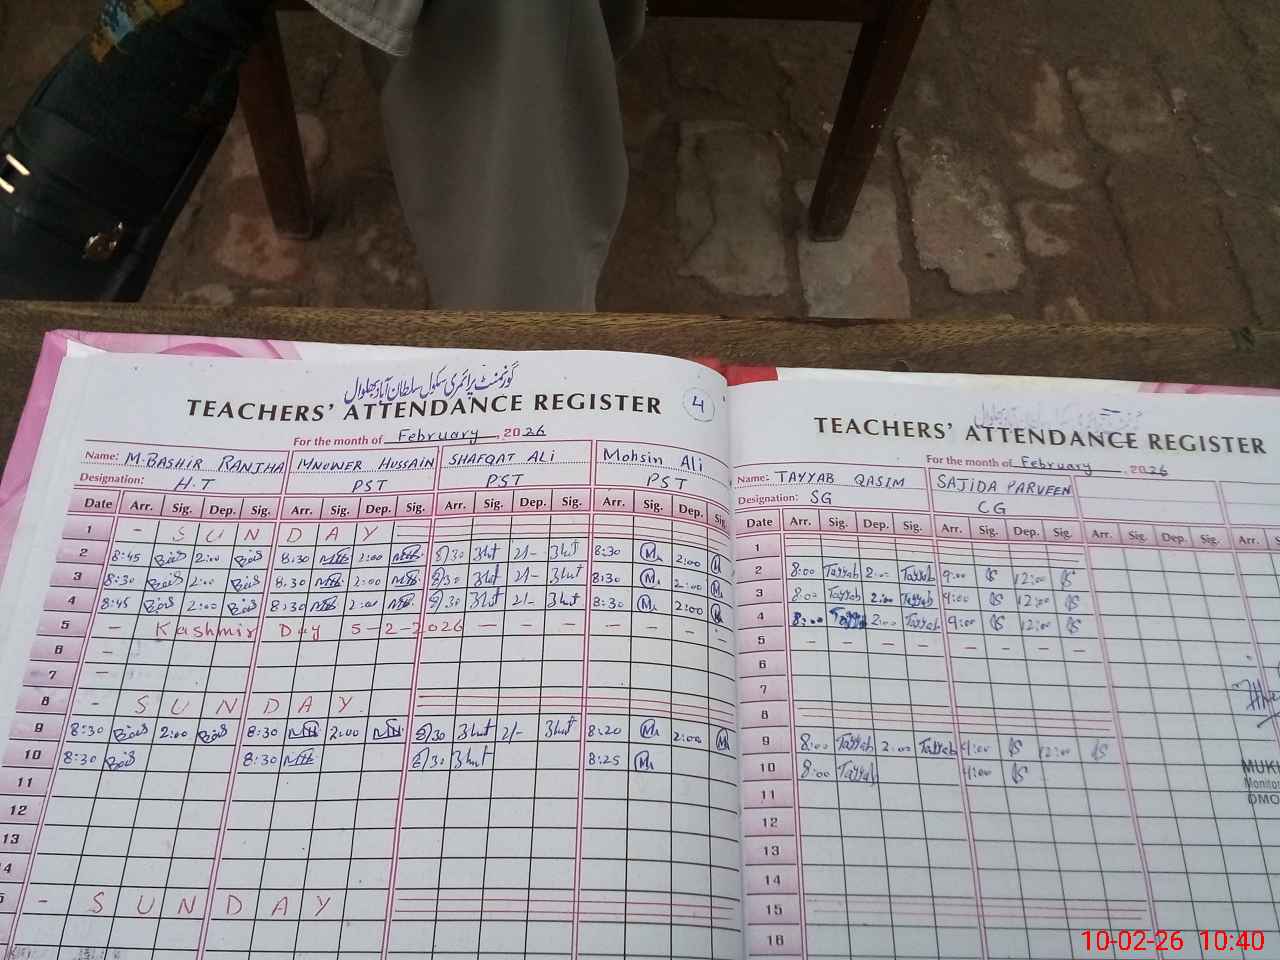 گورنمنٹ پرائمری سکول سلطان آباد بھلوال
TEACHERS' ATTENDANCE REGISTER 4
For the month of February, 2026
Name: M.BASHIR RANJHA MNOWER HUSSAIN SHAFQAT ALI Mohsin Ali
Designation: H.T PST PST PST
Date Arr. Sig. Dep. Sig. Arr. Sig. Dep. Sig. Arr. Sig. Dep. Sig. Arr. Sig. Dep. Sig.
1 - SUNDAY
2 8:45 2:00 8:30 2:00 8/30 2/- 8:30 2:00
3 8:30 2:00 8:30 2:00 8/30 2/- 8:30 2:00
4 8:45 2:00 8:30 2:00 8/30 2/- 8:30 2:00
5 - Kashmir Day 5-2-2026 - - - - - - -
6 -
7 -
8 - SUNDAY
9 8:30 2:00 8:30 2:00 8/30 2/- 8:20 2:00
10 8:30 8:30 8/30 8:25
11
12
13
14
- SUNDAY
TEACHERS' ATTENDANCE REGISTER
For the month of February 2026
Name: TAYYAB QASIM SAJIDA PARVEEN
Designation: SG CG
Date Arr. Sig. Dep. Sig. Arr. Sig. Dep. Sig. Arr. Sig. Dep. Sig. Arr.
1
2 8:00 Tayyab 2:00 Tayyab 9:00 12:00
3 8:00 Tayyab 2:00 Tayyab 9:00 12:00
4 8:00 Tayyab 2:00 Tayyab 9:00 12:00
5 - - - - - - - -
6
7
8
9 8:00 Tayyab 2:00 Tayyab 9:00 12:00
10 8:00 Tayyab 9:00
11
12
13
14
15
16
MUKH
Monitor
DMO
10-02-26 10:40